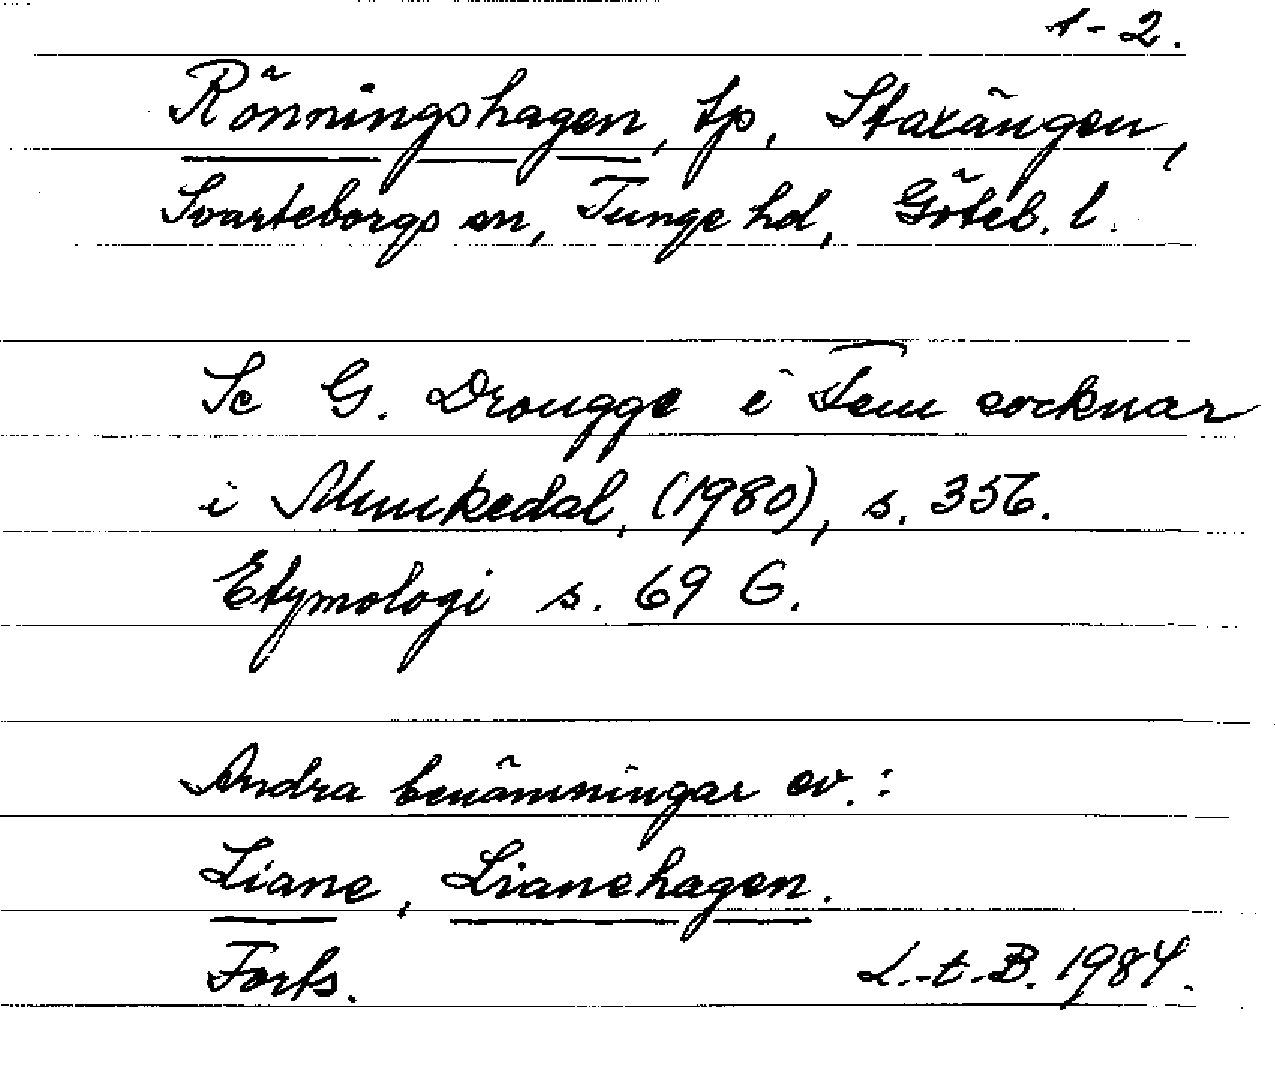 1-2.
Rönningshagen, tp, Staxängen,
Svarteborgs sn, Tunge hd, Göteb. l.
Se G. Drougge i Fem socknar
i Munkedal, (1980), s. 356.
Etymologi s. 69 G.
Andra benämningar ev.:
Liane, Lianehagen.
Forts.
L.-t.-B. 1984.